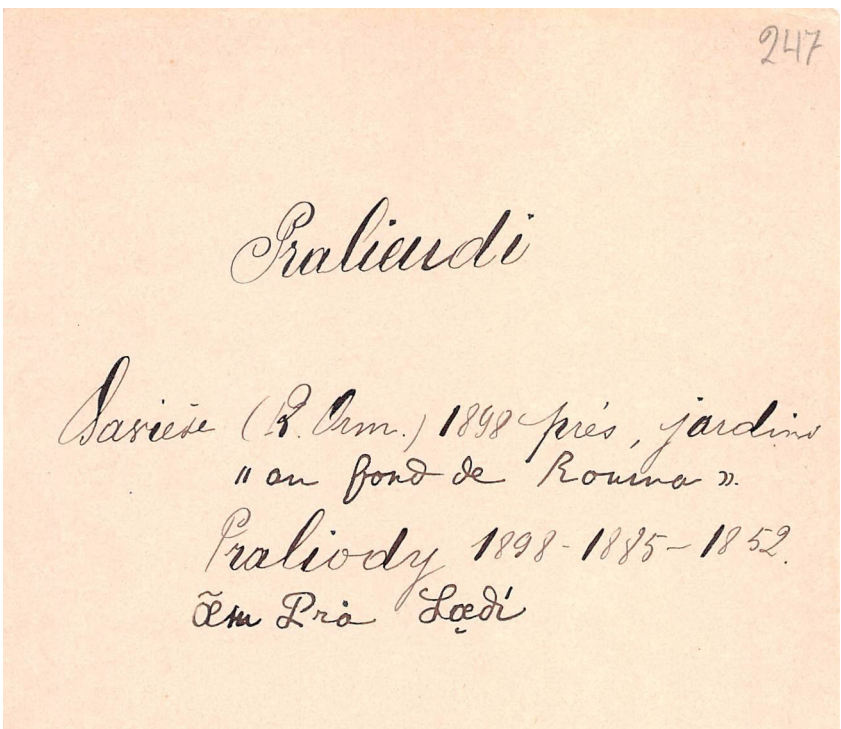 247
Pralieudi
Savièse (R. Orm.) 1898 prés, jardins
"au fond de Rouma".
Praliody 1898-1885-1852.
Pra Lœ̨dí